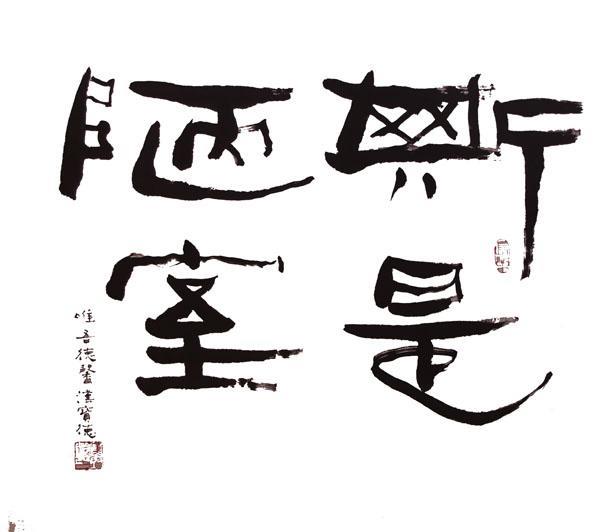 斯是
陋室
唯吾德馨 漢寶德